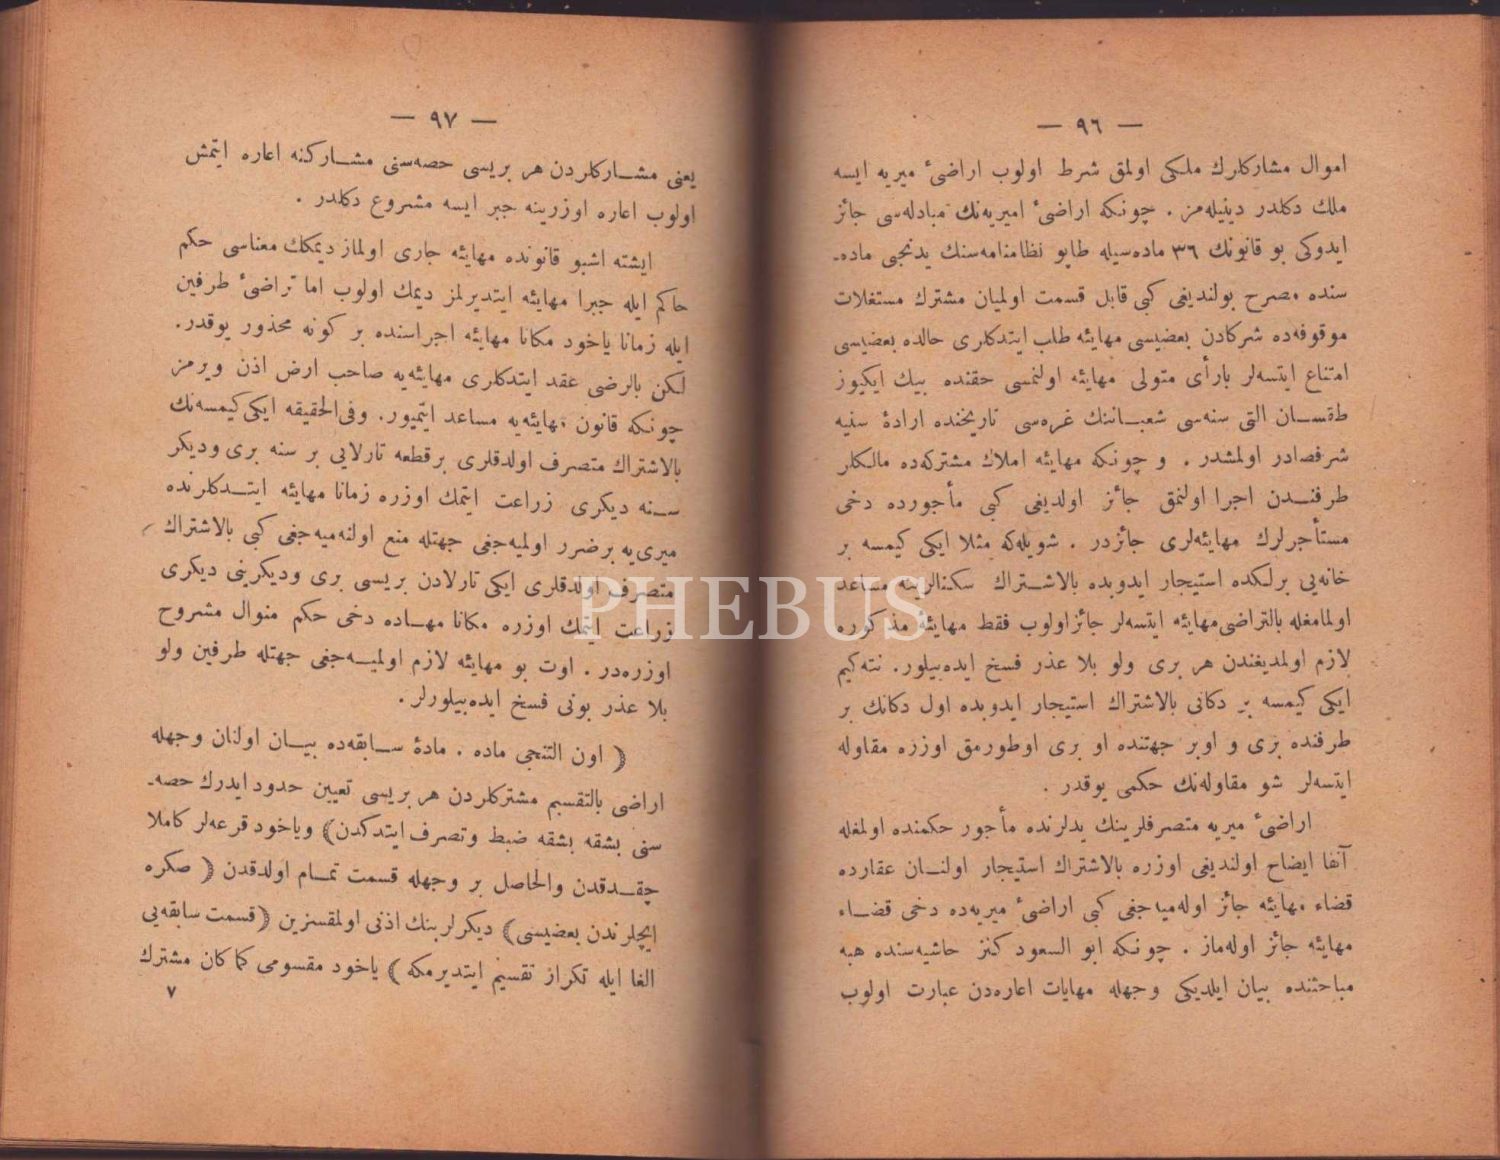 — ٩٦ —
اموال مشاركلرك ملكی اولمق شرط اولوب اراضیٔ میریه ایسه
ملك دكلدر دینیله‌مز . چونكه اراضیٔ امیریه‌نك مبادله‌سی جائز
ایدوكی بو قانونك ٣٦ ماده‌سیله طاپو نظامنامه‌سنك یدنجی ماده‌ـ
سنده مصرح بولندیغی كبی قابل قسمت اولمیان مشترك مستغلات
موقوفه‌ده شركادن بعضیسی مهایئه طلب ایتدكلری حالده بعضیسی
امتناع ایتسه‌لر بارأی متولی مهایئه اولنمسی حقنده بیك ایكیوز
طقسـان التی سنه‌سی شعبـاننك غره‌سی تاریخنده ارادهٔ سنیه
شرفصادر اولمشدر . و چونكه مهایئه املاك مشتركه‌ده مالكلر
طرفنـدن اجرا اولنمق جائز اولدیغی كبی مأجورده دخی
مستأجرلرك مهایئه‌لری جائزدر . شویله‌كه مثلا ایكی كیمسه بر
خانه‌یی برلكده استیجار ایدوبده بالاشـتراك سكنالرینه مساعد
اولمامغله بالتراضی مهایئه ایتسه‌لر جائز اولوب فقط مهایئهٔ مذكوره
لازم اولمدیغندن هر بری ولو بلا عذر فسخ ایده‌بیلور. نته‌كیم
ایكی كیمسه بر دكانی بالاشتراك استیجار ایدوبده اول دكانك بر
طرفنده بری و اوبر جهتنده او بری اوطورمق اوزره مقاوله
ایتسه‌لر شو مقاوله‌نك حكمی یوقدر .
اراضیٔ میریه متصرفلرینك یدلرنده مأجور حكمنده اولمغله
آنفا ایضاح اولندیغی اوزره بالاشتراك استیجار اولنـان عقارده
قضاء مهایئه جائز اوله‌میه‌جغی كبی اراضیٔ میریه‌ده دخی قضـاء
مهایئه جائز اوله‌ماز . چونكه ابو السعود كنز حاشیه‌سنده هبه
مباحثنده بیان ایلدیكی وجهله مهایات اعاره‌دن عبارت اولوب
— ٩٧ —
یعنی مشـاركلردن هر بریسی حصه‌سنی مشـاركنه اعاره ایتمش
اولوب اعاره اوزرینه جبر ایسه مشروع دكلدر .
ایشته اشبو قانونده مهایئه جاری اولماز دیمكك معناسی حكم
حاكم ایله جبرا مهایئه ایتدیرلمز دیمك اولوب اما تراضیٔ طرفین
ایله زمانا یاخود مكانا مهایئه اجراسنده بر كونه محذور یوقدر.
لكن بالرضی عقد ایتدكلری مهایئه‌یه صاحب ارض اذن ویرمز
چونكه قانون مهایئه‌یه مساعد ایتمیور. وفی‌الحقیقه ایكی كیمسه‌نك
بالاشتراك متصرف اولدقلری برقطعه تارلایی بر سنه بری ودیكر
سـنه دیكری زراعت ایتمك اوزره زمانا مهایئه ایتـدكلرنده
میری‌یه برضرر اولمیه‌جغی جهتله منع اولنه‌میه‌جغی كبی بالاشتراك
متصرف اولدقلری ایكی تارلادن بریسی بری ودیكرینی دیكری
زراعت ایتمك اوزره مكانا مهـاده دخی حكم منوال مشروح
اوزره‌در . اوت بو مهایئه لازم اولمیـه‌جغی جهتله طرفین ولو
بلا عذر بونی فسخ ایده‌بیلورلر .
﴿ اون التنجی ماده . مادهٔ سـابقه‌ده بیـان اولنان وجهله
اراضی بالتقسیم مشتركلردن هر بریسی تعیین حدود ایدرك حصه‌ـ
سنی بشقه بشقه ضبط وتصرف ایتدكدن﴾ ویاخود قرعه‌لر كاملا
چقـدقدن والحاصل بر وجهله قسمت تمـام اولدقدن ﴿ صكره
ایچلرندن بعضیسی﴾ دیكرلرینك اذنی اولمقسزین ﴿قسمت سابقه‌یی
الغا ایله تكرار تقسیم ایتدیرمكه﴾ یاخود مقسومی كما كان مشترك
٧
PHEBUS